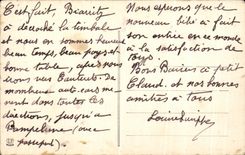 C'est fait, Biarritz
a décroché la timbale
et nous en sommes heureux
beau temps, beau pays et
bonne table, après nous
irons vers Cauterets. De
nombreux auto-cars nous
mènent dans toutes les
directions, jusqu'à
Pampelune (avec
passeport)
Nous apprenons que le
nouveau bébé a fait
son entrée en ce monde
à la satisfaction de
tous.
Bons Baisers à petit
Claud. et nos bonnes
amitiés à tous